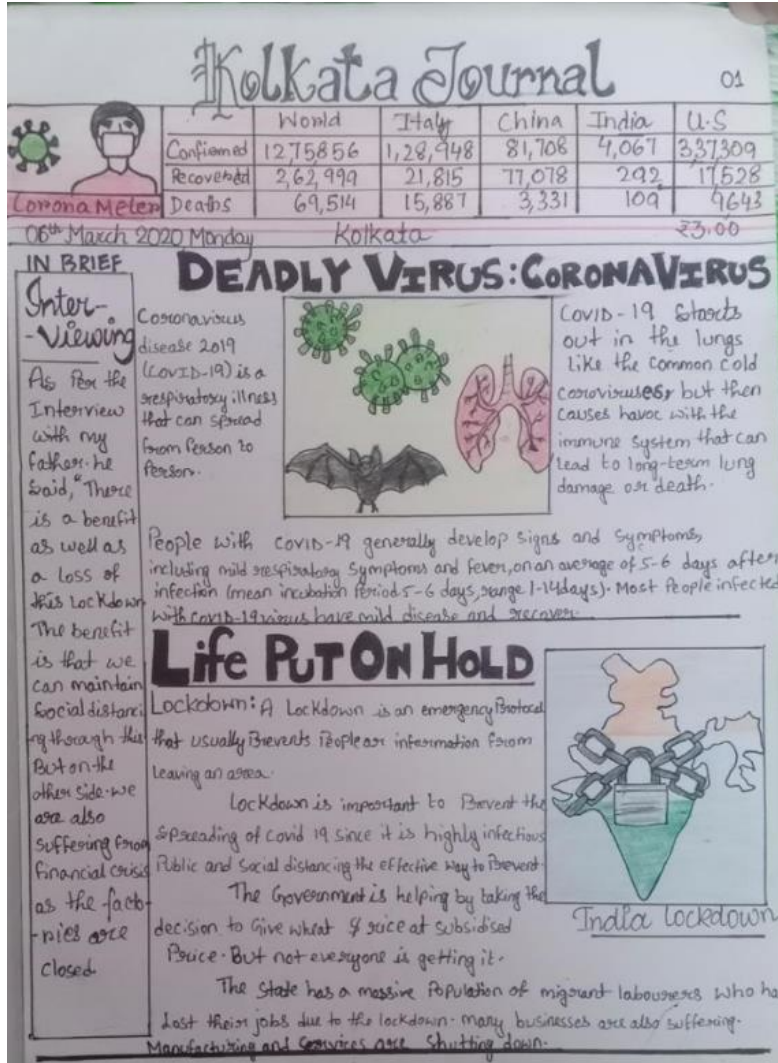 Kolkata Journal
01
World Italy China India U.S
Confirmed 1275856 1,28,948 81,708 4,067 3,37,309
Recovered 2,62,999 21,815 77,078 292 17,528
Corona Meter Deaths 69,514 15,887 3,331 109 9643
06th March 2020 Monday Kolkata ₹3.00
IN BRIEF
Inter-
-Viewing
As Per the
Interview
with my
father. he
said, "There
is a benefit
as well as
a loss of
this Lockdown
The benefit
is that we
can maintain
Social distanci
ng through this
But on the
other side. we
are also
suffering from
financial crisis
as the facto-
-ries are
closed
DEADLY VIRUS: CORONAVIRUS
Coronavirus
disease 2019
(COVID-19) is a
respiratory illness
that can spread
from Person to
Person.
COVID-19 Starts
out in the lungs
like the common cold
coroviruses, but then
causes havoc with the
immune system that can
lead to long-term lung
damage or death.
People with COVID-19 generally develop signs and Symptoms,
including mild respiratory Symptoms and fever, on an average of 5-6 days after
infection (mean incubation Period 5-6 days, range 1-14days). Most People infected
with COVID-19 virus have mild disease and recover.
LIFE PUT ON HOLD
Lockdown: A Lockdown is an emergency Protocol
that usually Prevents People or information from
leaving an area.
Lockdown is important to Prevent the
Spreading of Covid 19 since it is highly infectious
Public and Social distancing the effective way to Prevent.
The Government is helping by taking the
decision to Give wheat & rice at subsidised
Price. But not everyone is getting it.
India Lockdown
The State has a massive Population of migrant labourers who ha
Lost their jobs due to the lockdown. many businesses are also suffering.
Manufacturing and Services are Shutting down.